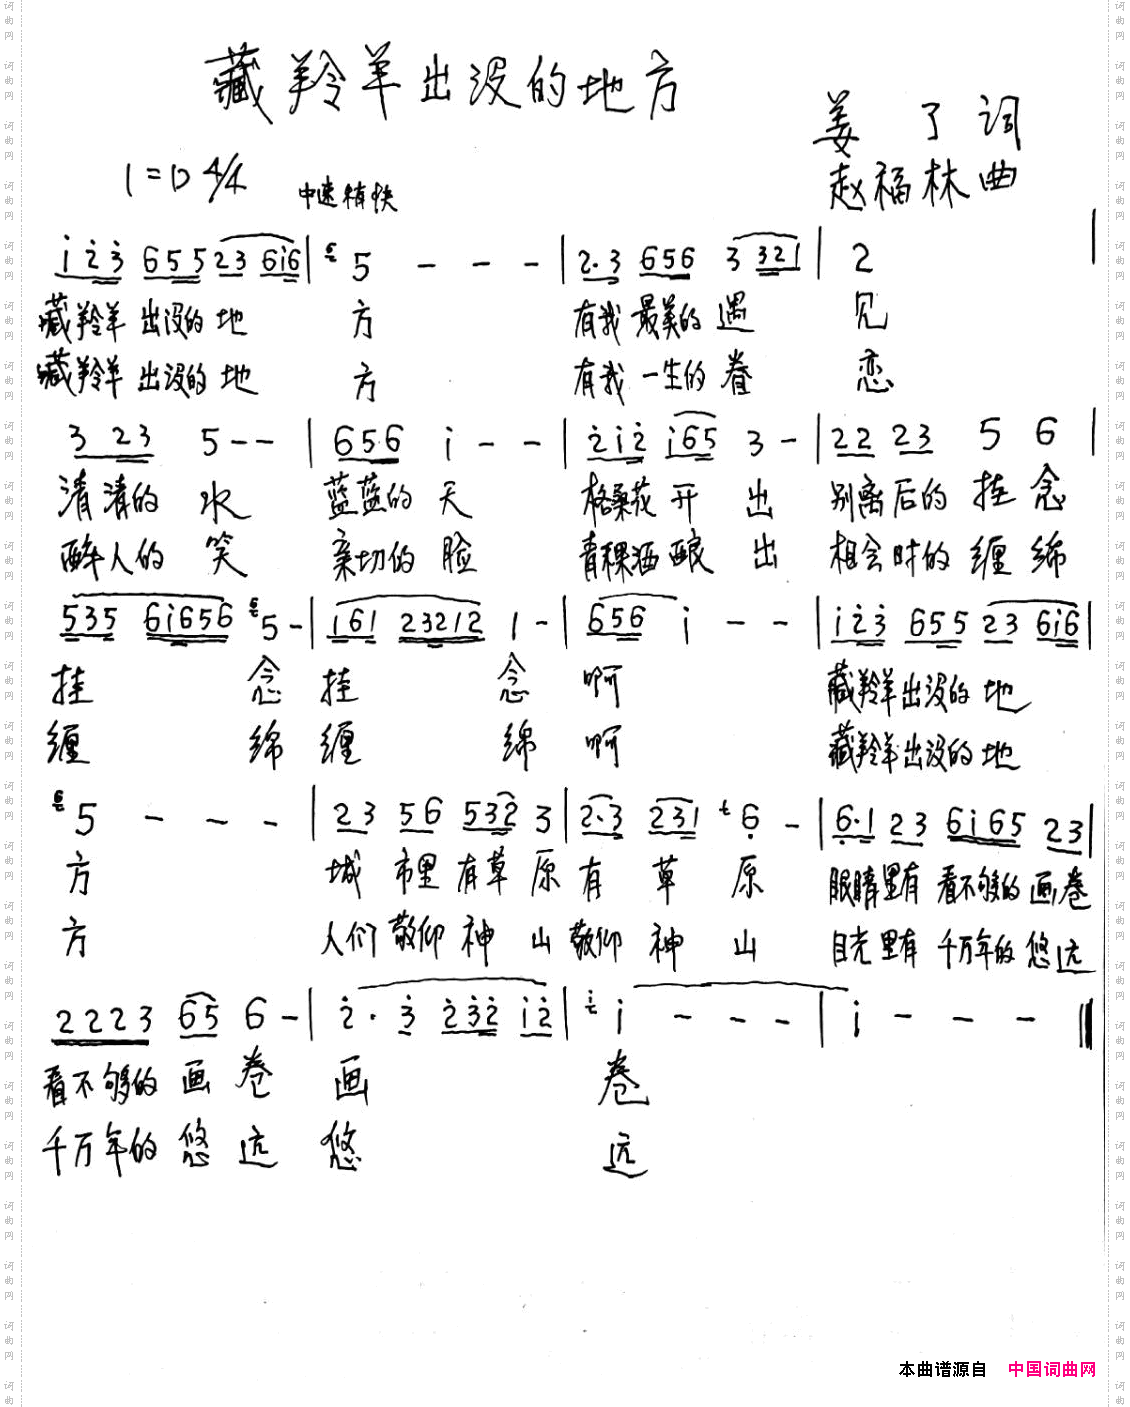 藏羚羊出没的地方
姜 了 词
1=D 4/4 中速稍快
赵福林曲
i 2 3 6 5 5 2 3 6 i 6 | 5 - - - | 2·3 6 5 6 3 3 2 1 | 2 |
藏羚羊 出没的 地 方 有我 最美的 遇 见
藏羚羊 出没的 地 方 有我 一生的 眷 恋
3 2 3 5 - - | 6 5 6 i - - | 2 i 2 i 6 5 3 - | 2 2 2 3 5 6 |
清清的 水 蓝蓝的 天 格桑花 开 出 别离后的 挂 念
醉人的 笑 亲切的 脸 青稞酒 酿 出 相会时的 缠 绵
5 3 5 6 i 6 5 6 5 - | i 6 1 2 3 2 1 2 1 - | 6 5 6 i - - | i 2 3 6 5 5 2 3 6 i 6 |
挂 念 挂 念 啊 藏羚羊 出没的 地
缠 绵 缠 绵 啊 藏羚羊 出没的 地
5 - - - | 2 3 5 6 5 3 2 3 | 2·3 2 3 1 6 - | 6·1 2 3 6 i 6 5 2 3 |
方 城 市里 有草 原 有 草 原 眼睛里有 看不够的 画卷
方 人们 敬仰 神 山 敬仰 神 山 目光里有 千万年的 悠远
2 2 2 3 6 5 6 - | 2 · 3 2 3 2 i 2 | i - - - | i - - - ‖
看不够的 画 卷 画 卷
千万年的 悠 远 悠 远
本曲谱源自 中国词曲网